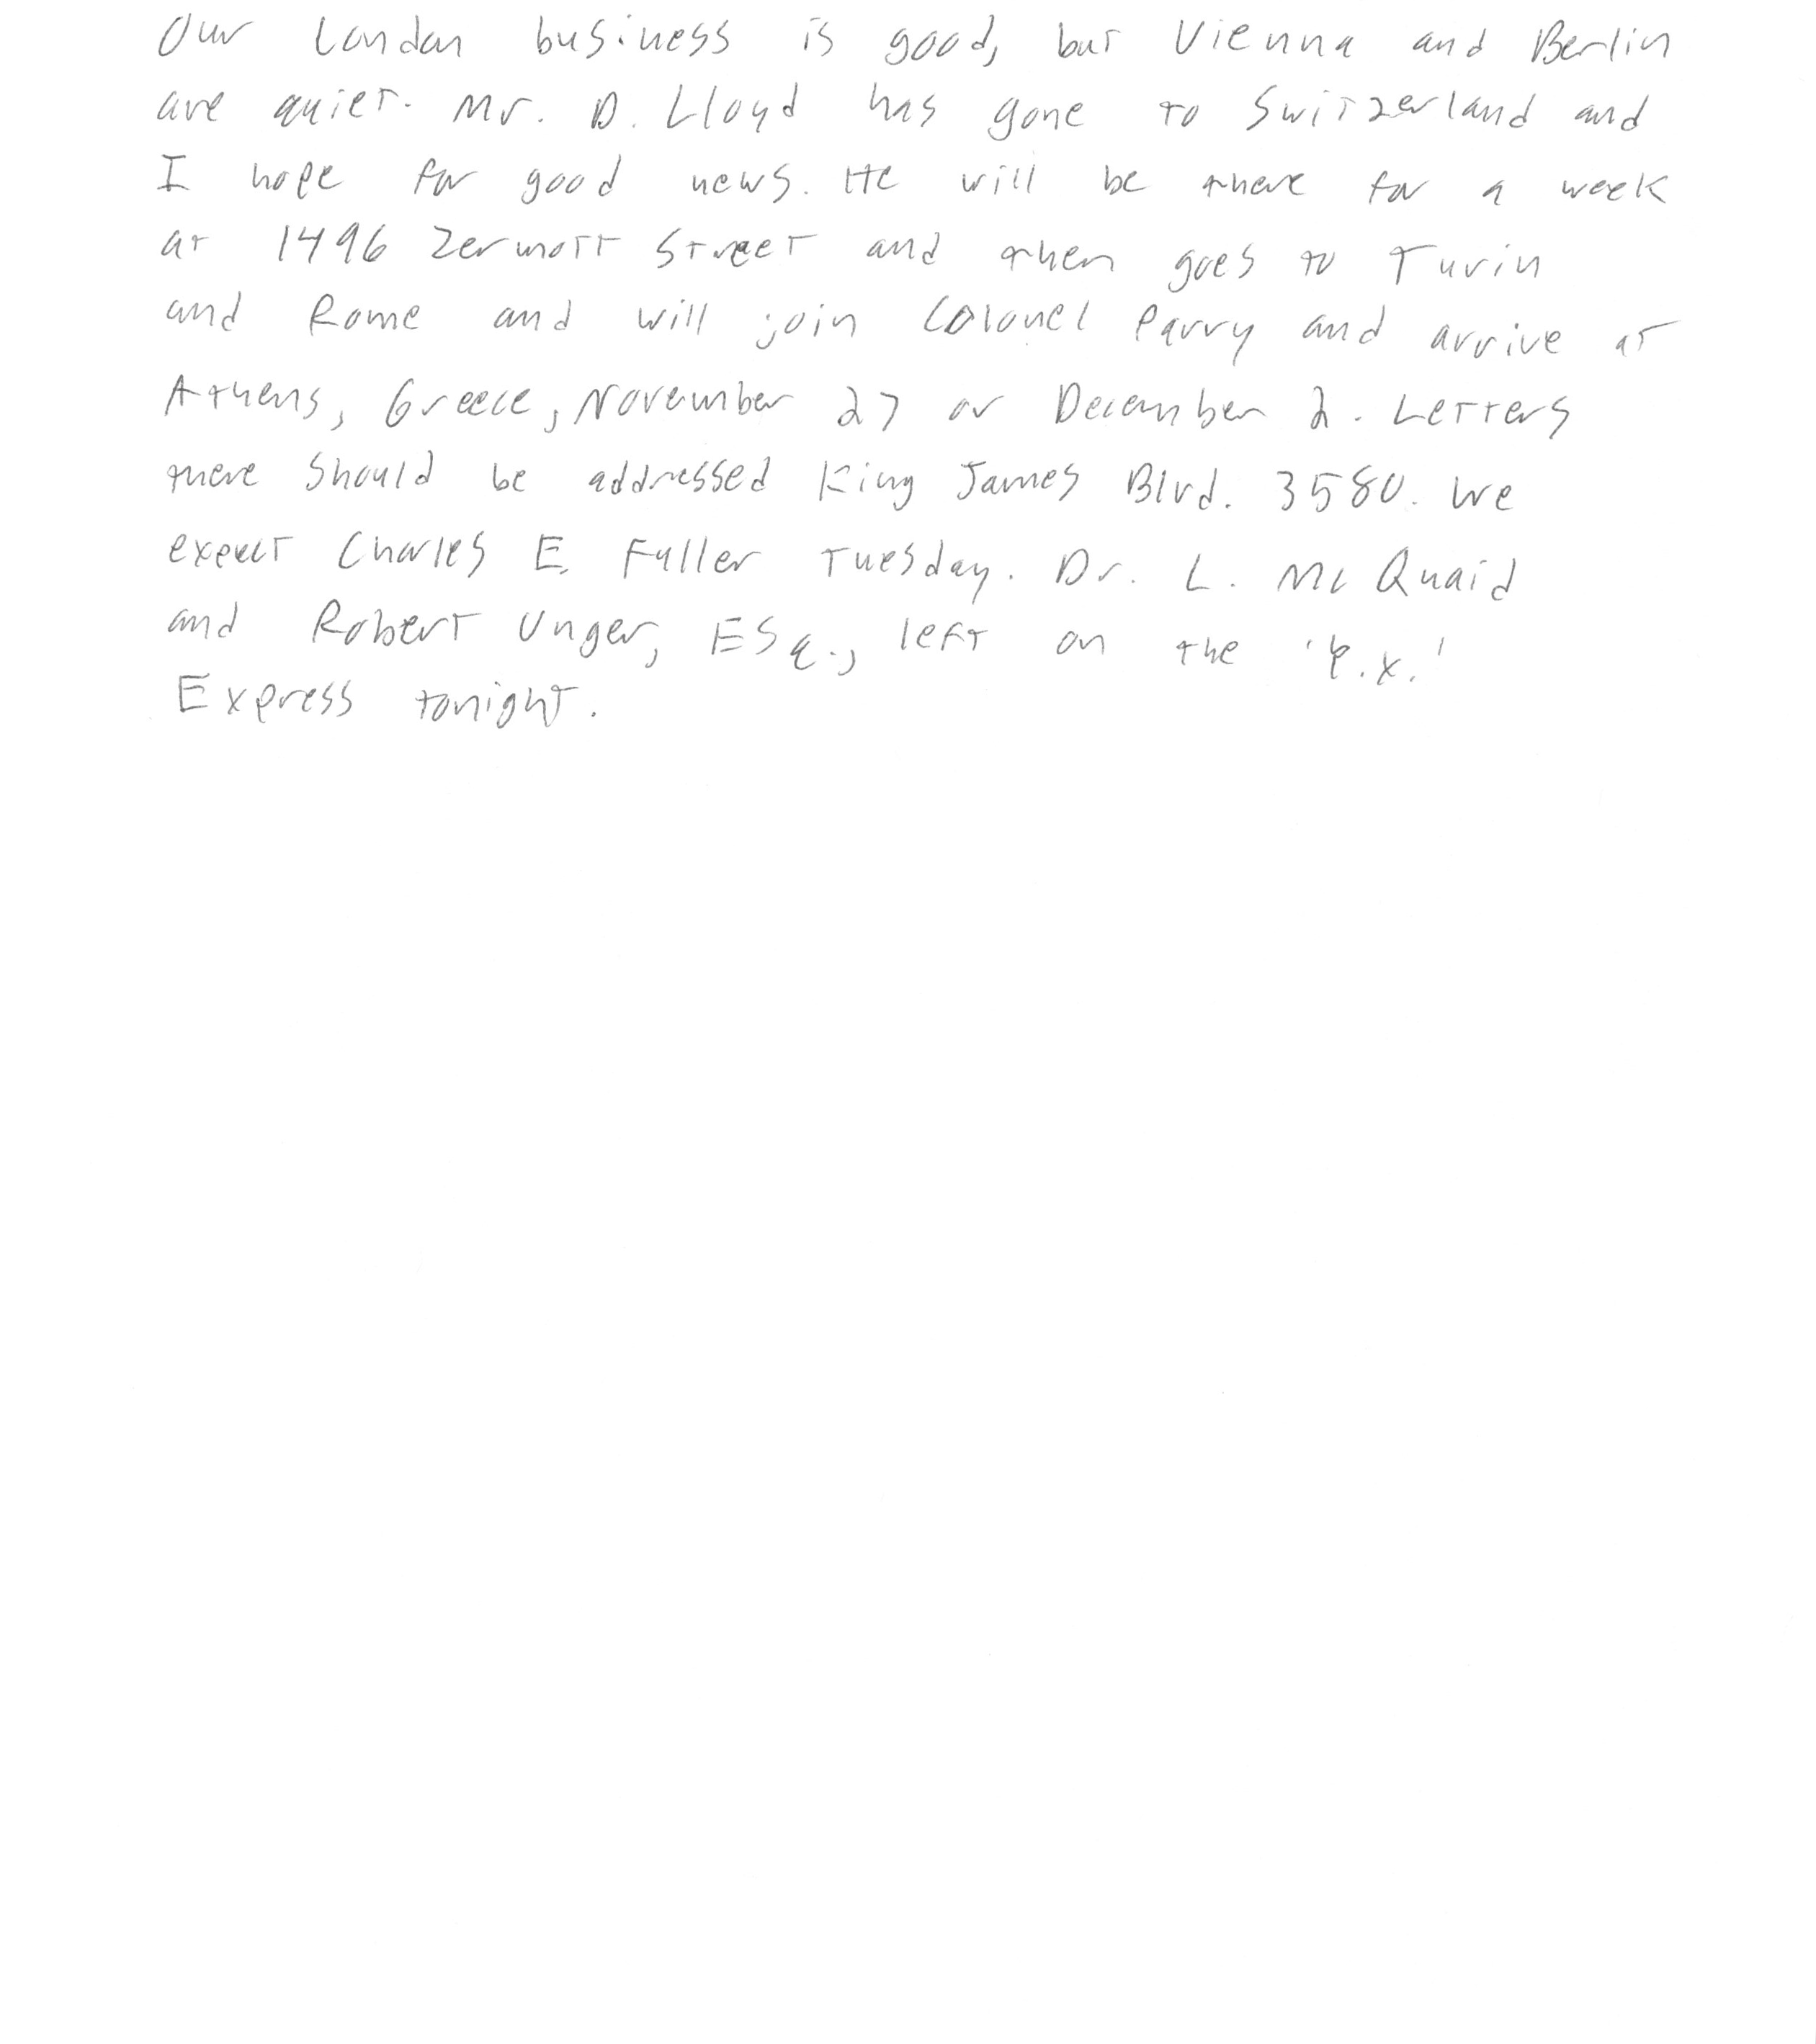 Our London business is good, but Vienna and Berlin
are quiet. Mr. D. Lloyd has gone to Switzerland and
I hope for good news. He will be there for a week
at 1496 Zermott Street and then goes to Turin
and Rome and will join Colonel Parry and arrive at
Athens, Greece, November 27 or December 2. Letters
there should be addressed King James Blvd. 3580. We
expect Charles E. Fuller Tuesday. Dr. L. McQuaid
and Robert Unger, Esq., left on the 'Y.X.'
Express tonight.